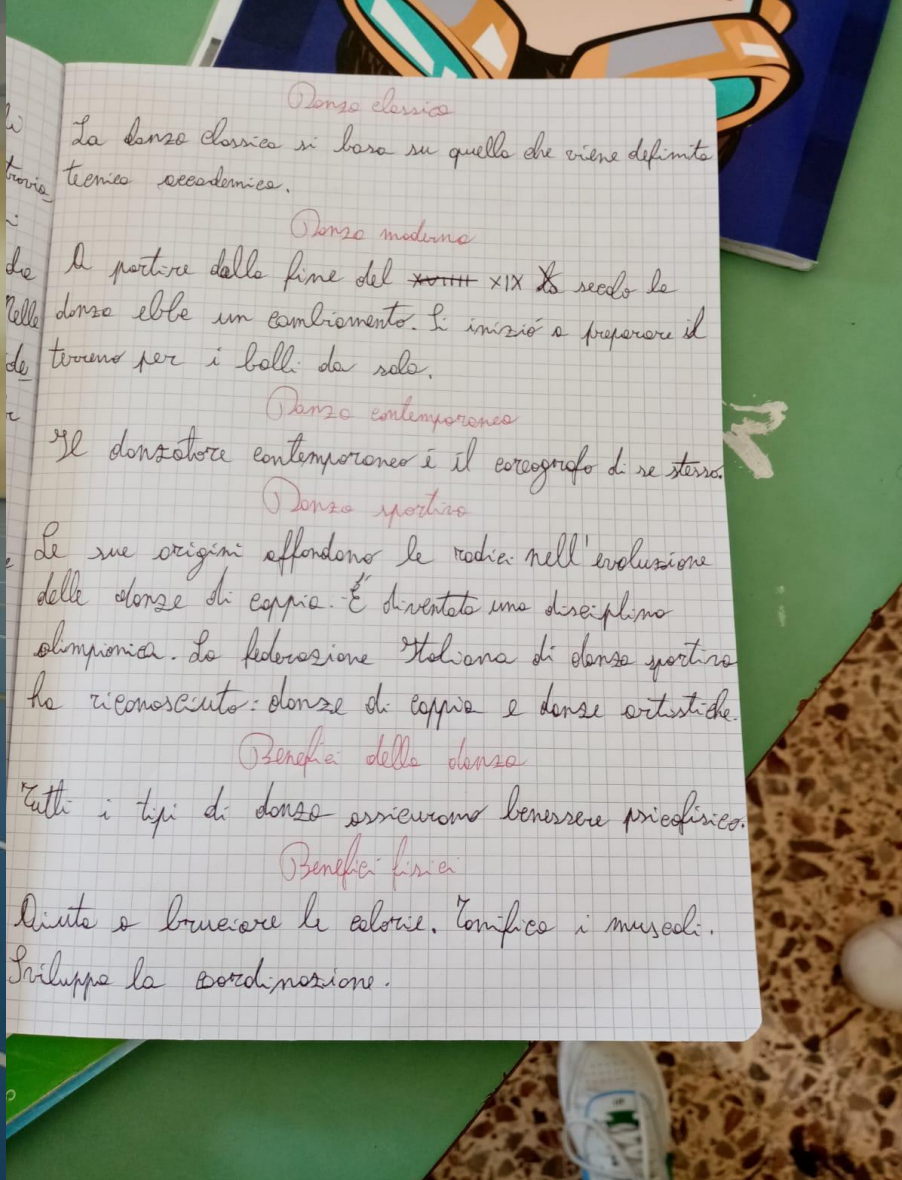 Danza classica
La danza classica si basa su quella che viene definita
tecnica accademica.
Danza moderna
A partire dalla fine del XIX secolo la
danza ebbe un cambiamento. Si inizió a preparare il
terreno per i balli da sala.
Danza contemporanea
Il danzatore contemporaneo é il coreografo di se stesso.
Danza sportiva
Le sue origini affondano le radici nell'evoluzione
delle danze di coppia. É diventata una disciplina
olimpionica. La federazione Italiana di danza sportiva
ha riconosciuto: danze di coppia e danze artistiche.
Benefici della danza
Tutti i tipi di danza assicurano benessere psicofisico.
Benefici fisici
Aiuta a bruciare le calorie. Tonifica i muscoli.
Sviluppa la coordinazione.